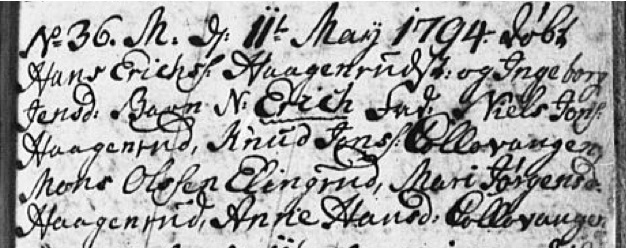 No 36. M. d: 11t May 1794. døbt
Hans Erichs: Haagenruds: og Ingeborg
Jensd: Baan N: Erich Fad: Niels Jons:
Haagenrud, Knud Jons: Collovangen,
Mons Olssen Elingrud, Mari Jørgensd:
Haagenrud, Anne Hansd: Collovangen